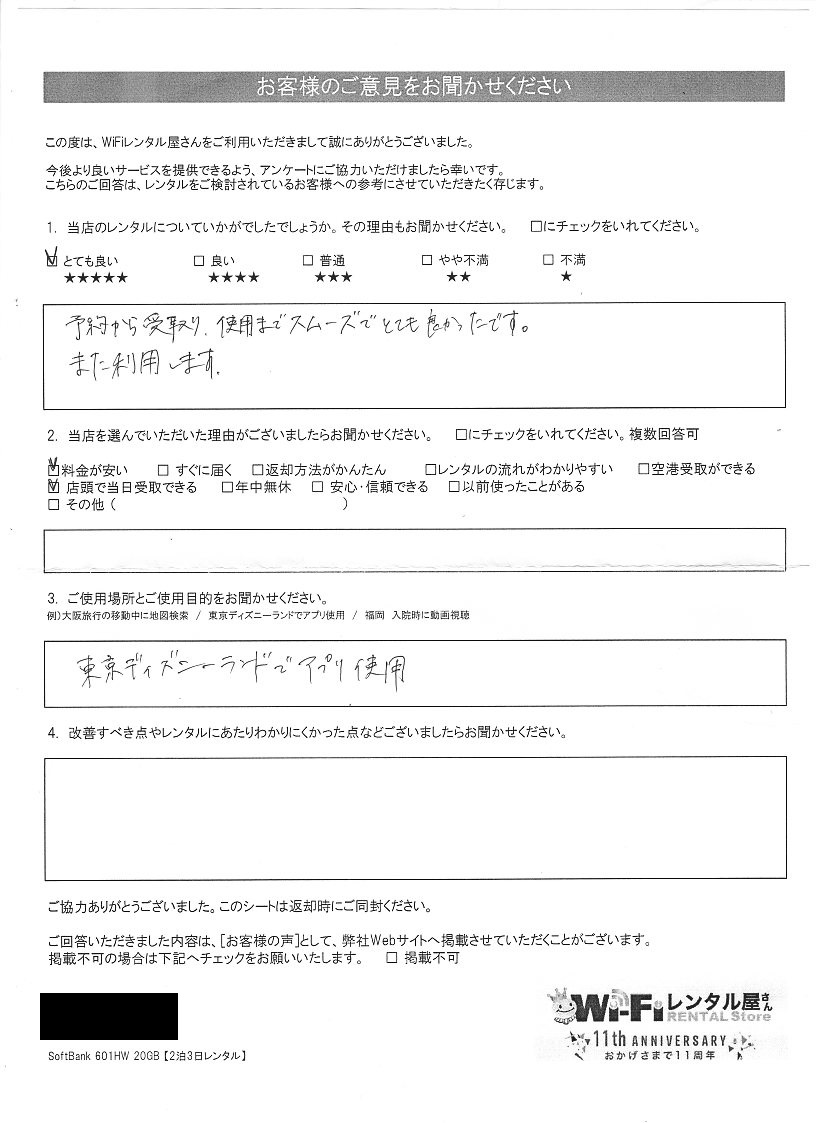 お客様のご意見をお聞かせください
この度は、WiFiレンタル屋さんをご利用いただきまして誠にありがとうございました。
今後より良いサービスを提供できるよう、アンケートにご協力いただけましたら幸いです。
こちらのご回答は、レンタルをご検討されているお客様への参考にさせていただきたく存じます。
1. 当店のレンタルについていかがでしたでしょうか。その理由もお聞かせください。 □にチェックをいれてください。
☑ とても良い □ 良い □ 普通 □ やや不満 □ 不満
★★★★★ ★★★★ ★★★ ★★ ★
予約から受取り、使用までスムーズでとても良かったです。
また利用します。
2. 当店を選んでいただいた理由がございましたらお聞かせください。 □にチェックをいれてください。複数回答可
☑料金が安い □ すぐに届く □返却方法がかんたん □レンタルの流れがわかりやすい □空港受取ができる
☑ 店頭で当日受取できる □年中無休 □ 安心・信頼できる □以前使ったことがある
□ その他 ( )
3. ご使用場所とご使用目的をお聞かせください。
例)大阪旅行の移動中に地図検索 / 東京ディズニーランドでアプリ使用 / 福岡 入院時に動画視聴
東京ディズニーランドでアプリ使用
4. 改善すべき点やレンタルにあたりわかりにくかった点などございましたらお聞かせください。
ご協力ありがとうございました。このシートは返却時にご同封ください。
ご回答いただきました内容は、[お客様の声]として、弊社Webサイトへ掲載させていただくことがございます。
掲載不可の場合は下記へチェックをお願いいたします。 □ 掲載不可
Wi-Fiレンタル屋さん
RENTAL Store
11th ANNIVERSARY
おかげさまで11周年
SoftBank 601HW 20GB【2泊3日レンタル】